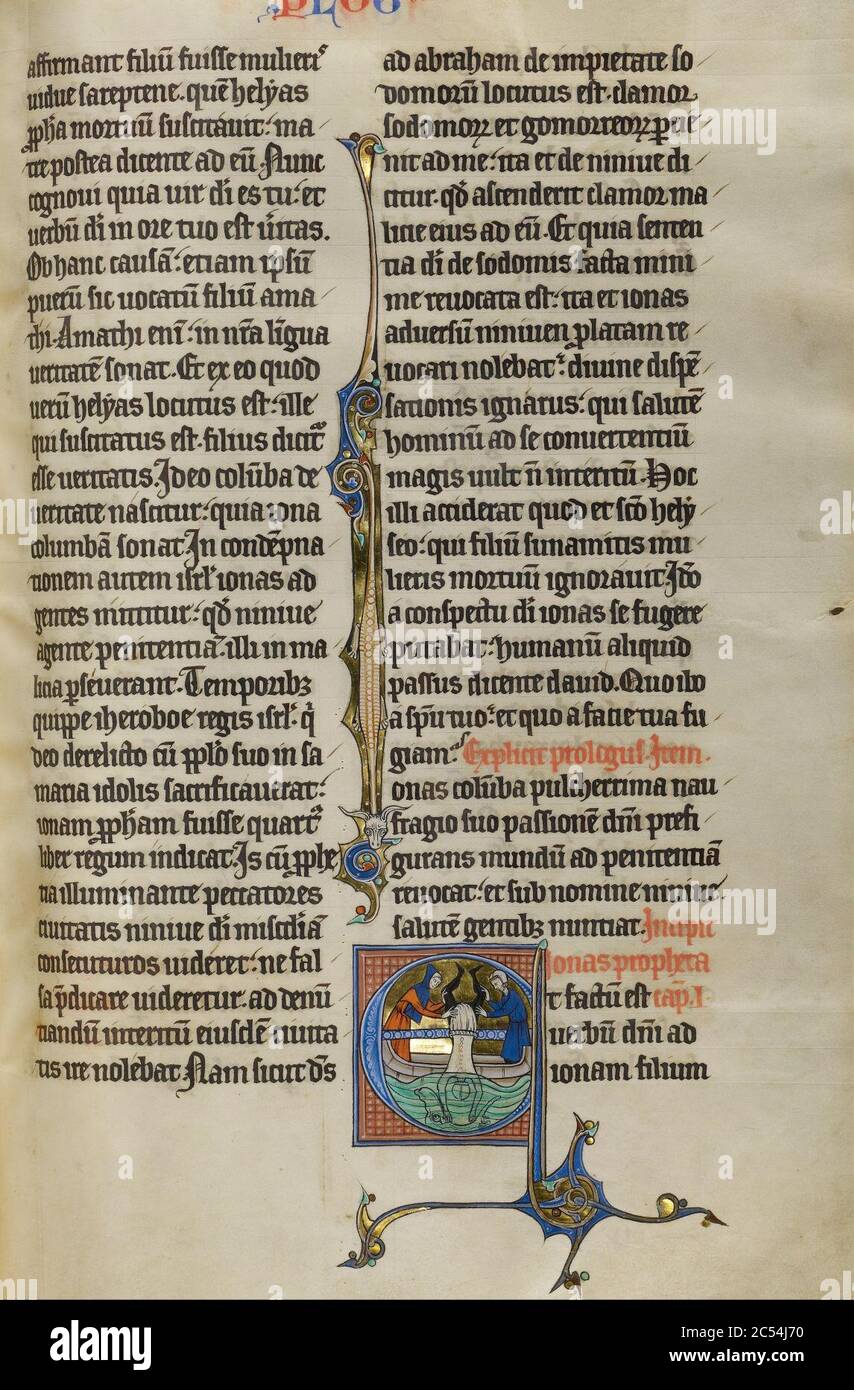 PLOG
affirmant filiū fuisse mulieris
uidue sareptene. quē helyas
ꝓpha mortuū suscitauit: ma
tre postea dicente ad eū. Nunc
cognoui quia uir di es tu: et
uerbū di in ore tuo est uitas.
Ob hanc causā: etiam ipsū
puerū sic uocatū filiū ama
thi. Amathi eni: in nra ligua
ueritatē sonat. Et ex eo quod
uerū helyas locutus est: ille
qui suscitatus est. filius dicit
esse ueritatis. Ideo colūba de
ueritate nascitur: quia iona
columbā sonat. In condēpna
tionem autem isrl. ionas ad
gentes mittitur: qd niniue
agente penitentiā: illi in ma
licia ꝑseuerant. Temporibꝫ
quippe iheroboe regis isrl. q
deo derelicto cū pplo suo in sa
maria idolis sacrificauerat:
ionam ꝓpham fuisse quart
liber regum indicat. Is cū ꝓphe
tia illuminante peccatores
ciuitatis niniue di miscdiā
consecuturos uideret: ne fal
sa pdicare uideretur. ad denū
tiandū interitū eiusdē ciuita
tis ire nolebat. Nam sicut ds
ad abraham de impietate so
domorū locutus est. clamor
sodomoꝝ et gomorreoꝝ ꝑue
nit ad me: ita et de niniue di
citur. qd ascenderit clamor ma
licie eius ad eū. Et quia senten
tia di de sodomis facta mini
me reuocata est: ita et ionas
aduersū niniuen ꝓlatam re
uocari nolebat: diuine dispē
sationis ignarus: qui salutē
hominū ad se conuertentiū
magis uult n interitū. Hoc
illi acciderat quod et sco hely
seo: qui filiū sunamitis mu
lieris mortuū ignorauit. Ido
a conspectu di ionas se fugere
putabat: humanū aliquid
passus dicente dauid. Quo ibo
a spu tuo: et quo a facie tua fu
giam. Explicit prologus. Item.
Ionas colūba pulcherrima nau
fragio suo passionē dni prefi
gurans mundū ad penitentiā
reuocat: et sub nomine niniue
salutē gentibꝫ nuntiat. Incipit
Ionas propheta
Et factū est cap. I.
uerbū dni ad
ionam filium
alamy
Image ID: 2C54J70
www.alamy.com